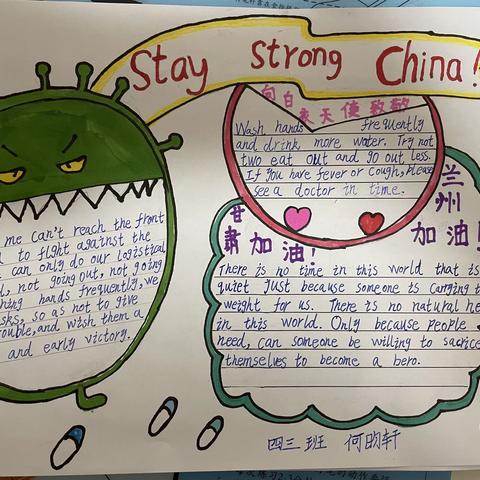 Stay strong China!
向白衣天使致敬
Wash hands frequently
and drink more water. Try not
two eat out and go out less.
If you have fever or cough, please
see a doctor in time.
甘肃加油!
兰州加油!
me can't reach the front
to fight against the
can only do our logistical
not going out, not going
hands frequently, we
sks, so as not to give
rouble, and wish them a
and early victory.
There is no time in this world that is
quiet Just because someone is carrying t
weight for us. There is no natural he
in this world. Only because people
need, can someone be willing to sacrice
themselves to become a hero.
四三班 何昀轩